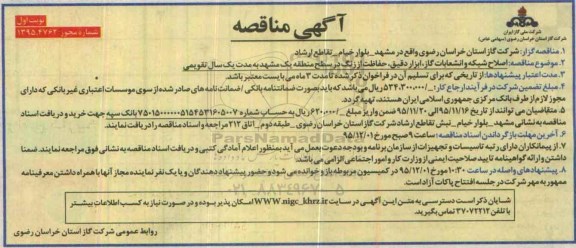 نوبت اول
شماره مجوز: ۱۳۹۵.۴۷۶۲
آگهی مناقصه
شرکت ملی گاز ایران
شرکت گاز استان خراسان رضوی (سهامی خاص)
۱. مناقصه گزار: شرکت گاز استان خراسان رضوی واقع در مشهد_بلوار خیام_تقاطع ارشاد
۲. موضوع مناقصه: اصلاح شبکه و انشعابات گاز، ابزار دقیق، حفاظت از زنگ در سطح منطقه یک مشهد به مدت یک سال تقویمی
۳. مدت اعتبار پیشنهادها: از تاریخی که برای تسلیم آن در فراخوان ذکر شده تا مدت ۳ ماه می بایست معتبر باشد.
۴. مبلغ تضمین شرکت در فرآیند ارجاع کار: /۵۳۴,۳۰۰,۰۰۰ ریال می باشد که باید بصورت ضمانتنامه بانکی / ضمانت نامه های صادر شده از سوی موسسات اعتباری غیر بانکی که دارای
مجوز لازم از طرف بانک مرکزی جمهوری اسلامی ایران هستند، تهیه گردد.
۵. متقاضیان می توانند از تاریخ ۹۵/۱۱/۱۶ الی ۹۵/۱۱/۲۰ ضمن واریز مبلغ /۶۲۰,۰۰۰ ریال به حساب شماره بانک سپه جهت خرید و دریافت اسناد
مناقصه به نشانی مشهد_بلوار خیام_نبش تقاطع ارشاد شرکت گاز استان خراسان رضوی_طبقه دوم_اتاق ۲۱۲ مراجعه و اسناد مناقصه را دریافت نمایند.
۶. آخرین مهلت بازگرداندن اسناد مناقصه: ساعت ۹ صبح مورخ ۹۵/۱۲/۰۱
۷. از پیمانکاران دارای رتبه تاسیسات و تجهیزات از سازمان برنامه و بودجه دعوت بعمل می آید بمنظور اعلام آمادگی کتبی و دریافت اسناد مناقصه به نشانی فوق مراجعه نمایند. ضمنا
داشتن و ارائه گواهینامه تایید صلاحیت ایمنی از وزارت کار و امور اجتماعی الزامی می باشد.
۸. پیشنهادهای واصله در ساعت ۱۰:۳۰ مورخ ۹۵/۱۲/۰۱ در کمیسیون مربوطه باز و خوانده می شود و حضور پیشنهاد دهندگان و یا یک نفر نماینده مجاز آنها با همراه داشتن معرفینامه
ممهور به مهر شرکت در جلسه افتتاح پاکات آزاد است.
شایان ذکر است دسترسی به متن این آگهی در سایت WWW.nigc_khrz.ir امکان پذیر بوده و در صورت نیاز به کسب اطلاعات بیشتر
با تلفن ۳۷۰۷۲۲۱۲ تماس بگیرید.
روابط عمومی شرکت گاز استان خراسان رضوی
ParsNamadData
۰۲۱-۸۸۳۴۹۶۷۰-۵